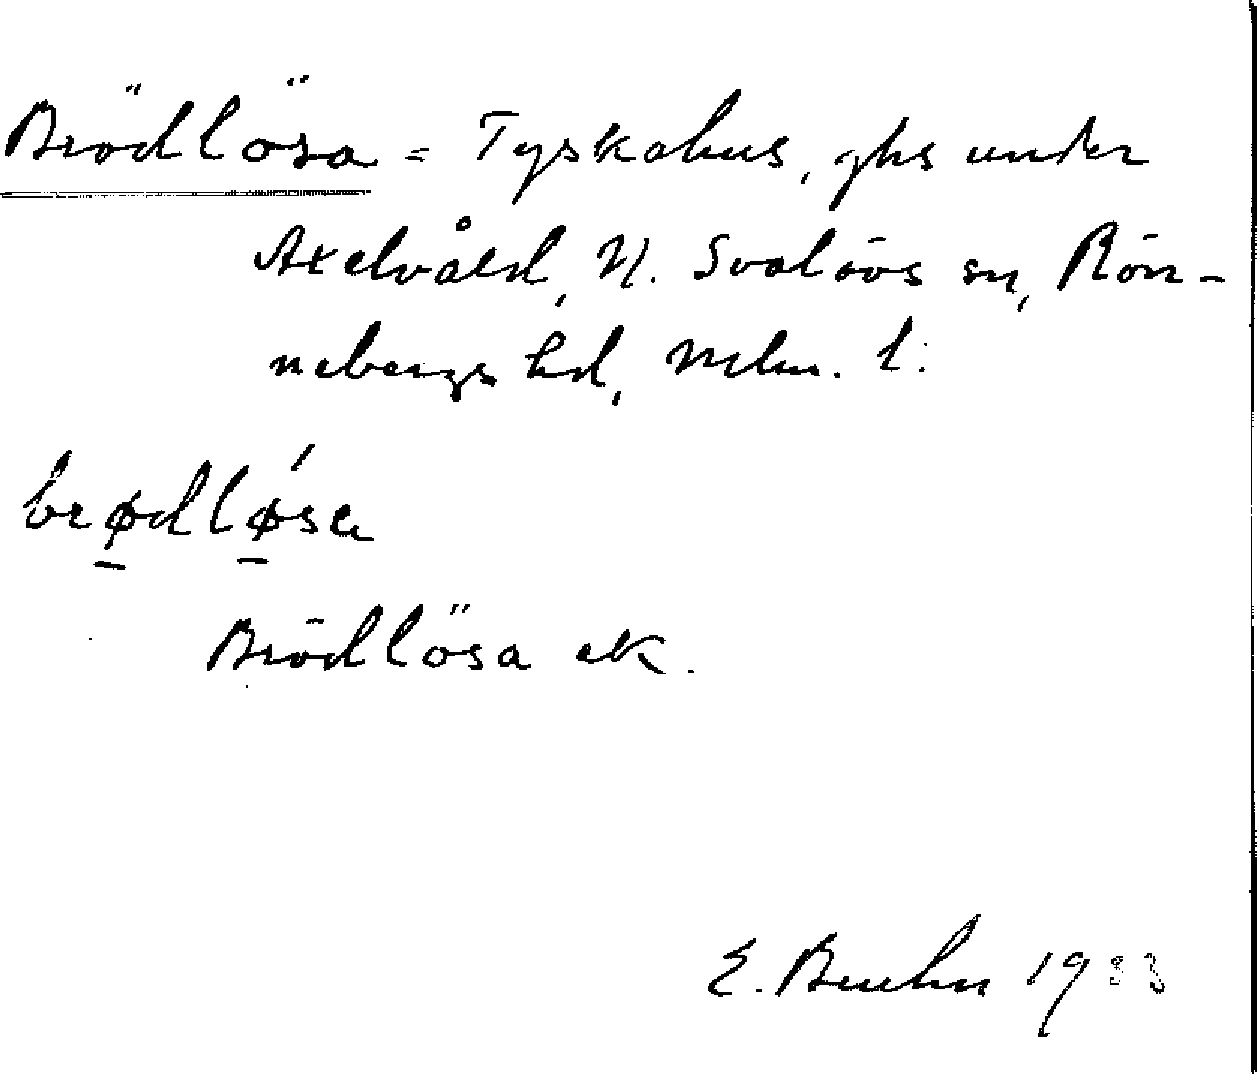 Brödlösa = Tyskahus, ghs under
Axelvåld, N. Svalövs sn, Rön-
nebergs hd, Mlm. l.
brødlǿsa
Brödlösa ek.
E. Bruhn 1933